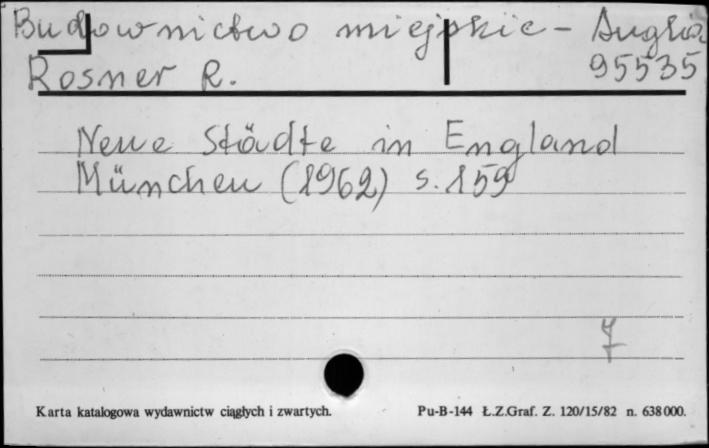 Budownictwo miejskie - Anglia
Rosner R. 95535
Neue Städte in England
München (1962) s. 159
7
Karta katalogowa wydawnictw ciągłych i zwartych. Pu-B-144 Ł.Z.Graf. Z. 120/15/82 n. 638000.